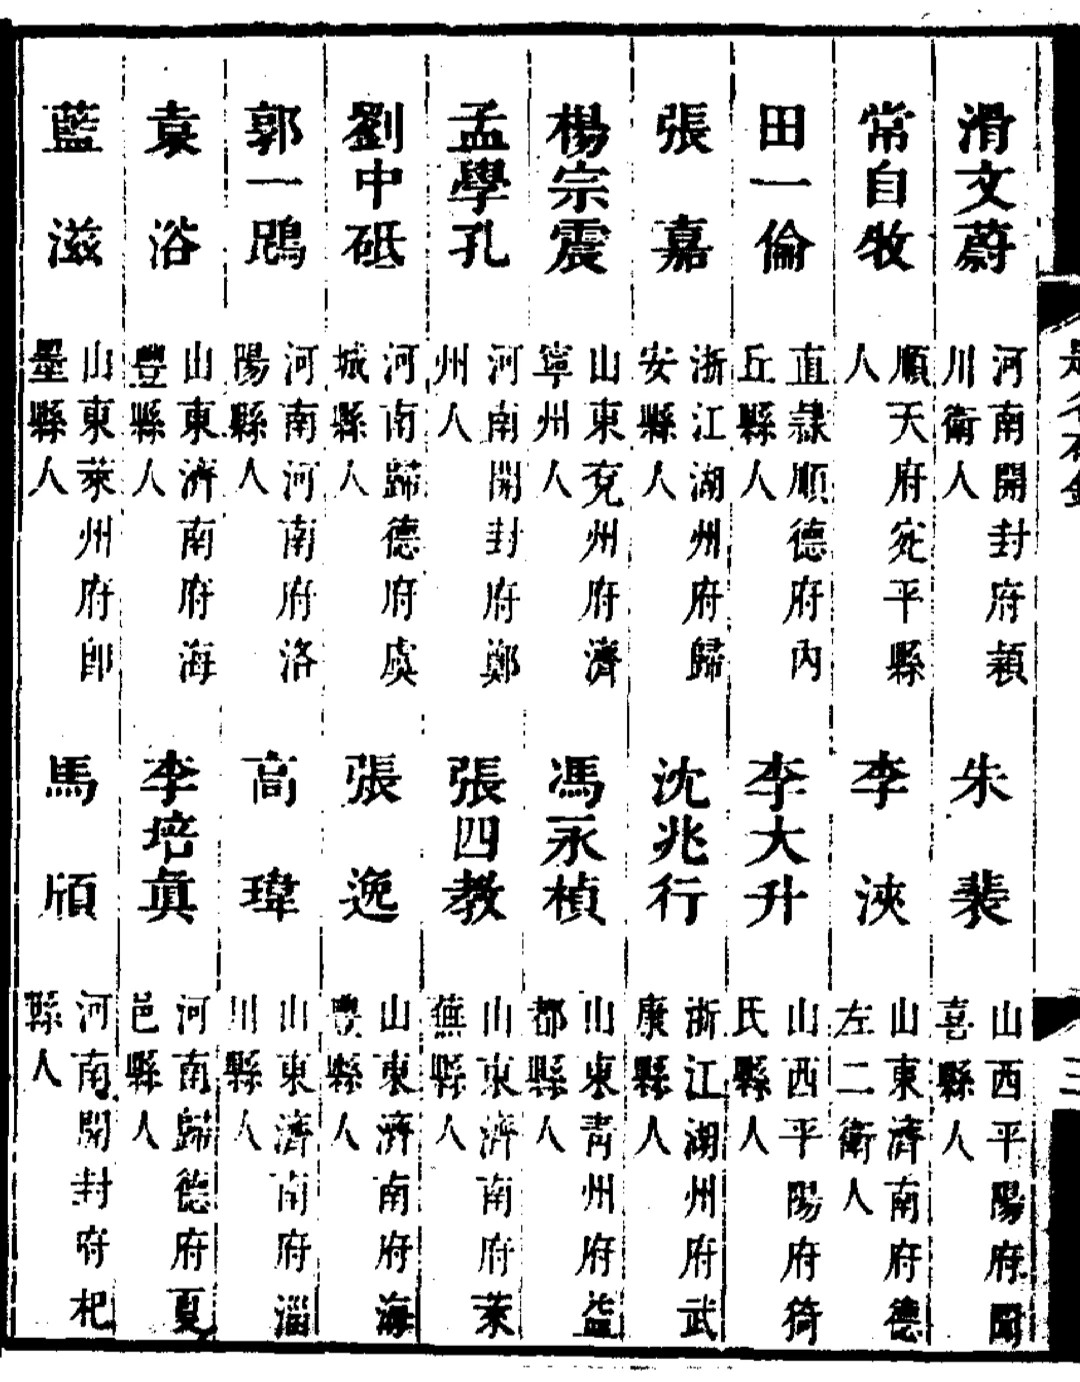 滑文蔚
河南開封府潁
川衛人
朱裴
山西平陽府聞
喜縣人
常自牧
順天府宛平縣
人
李浹
山東濟南府德
左二衛人
田一倫
直隷順德府內
丘縣人
李大升
山西平陽府猗
氏縣人
張嘉
浙江湖州府歸
安縣人
沈兆行
浙江湖州府武
康縣人
楊宗震
山東兖州府濟
寧州人
馮永楨
山東青州府益
都縣人
孟學孔
河南開封府鄭
州人
張四教
山東濟南府萊
蕪縣人
劉中砥
河南歸德府虞
城縣人
張逸
山東濟南府海
豐縣人
郭一鶚
河南河南府洛
陽縣人
高瑋
山東濟南府淄
川縣人
袁浴
山東濟南府海
豐縣人
李培真
河南歸德府夏
邑縣人
藍滋
山東萊州府即
墨縣人
馬頎
河南開封府杞
縣人